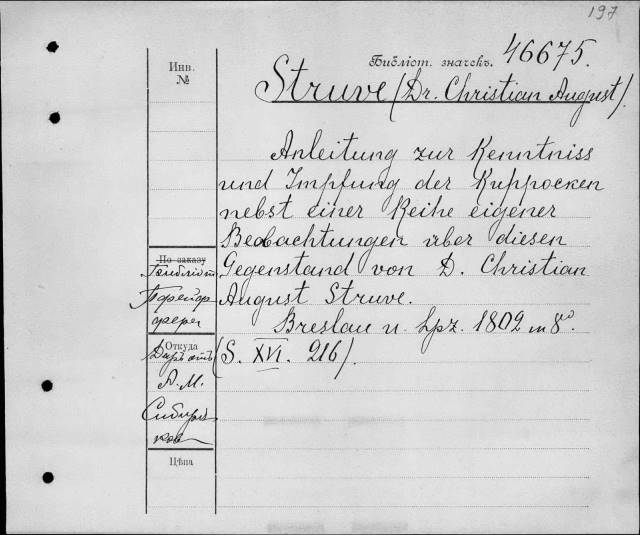 197
Инв.
№
Библіот. значекъ. 46675.
Struve (Dr. Christian August).
Anleitung zur Kenntniss
und Impfung der Kuppocken
nebst einer Reihe eigener
Beobachtungen über diesen
Gegenstand von D. Christian
August Struve.
Breslau u. Lpz. 1802 in 8º.
(S. XVI. 216).
По заказу
Откуда
Даръ отъ
А. М.
Сибиряк
Цѣна